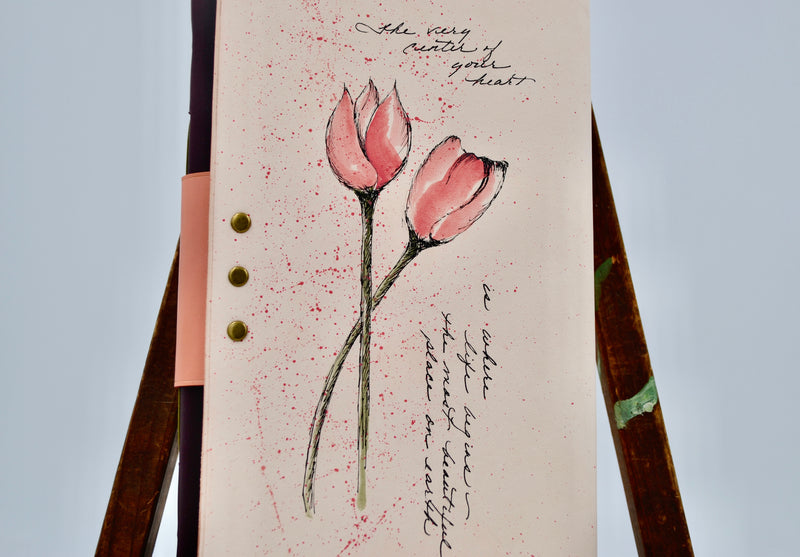 the very
center of
your
heart
is where
life begins –
the most beautiful
place on earth